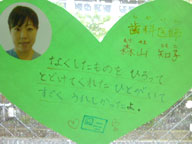 歯科医師
森山 知子
なくしたものをひろって
とどけてくれたひとがいて
すごくうれしかったよ。